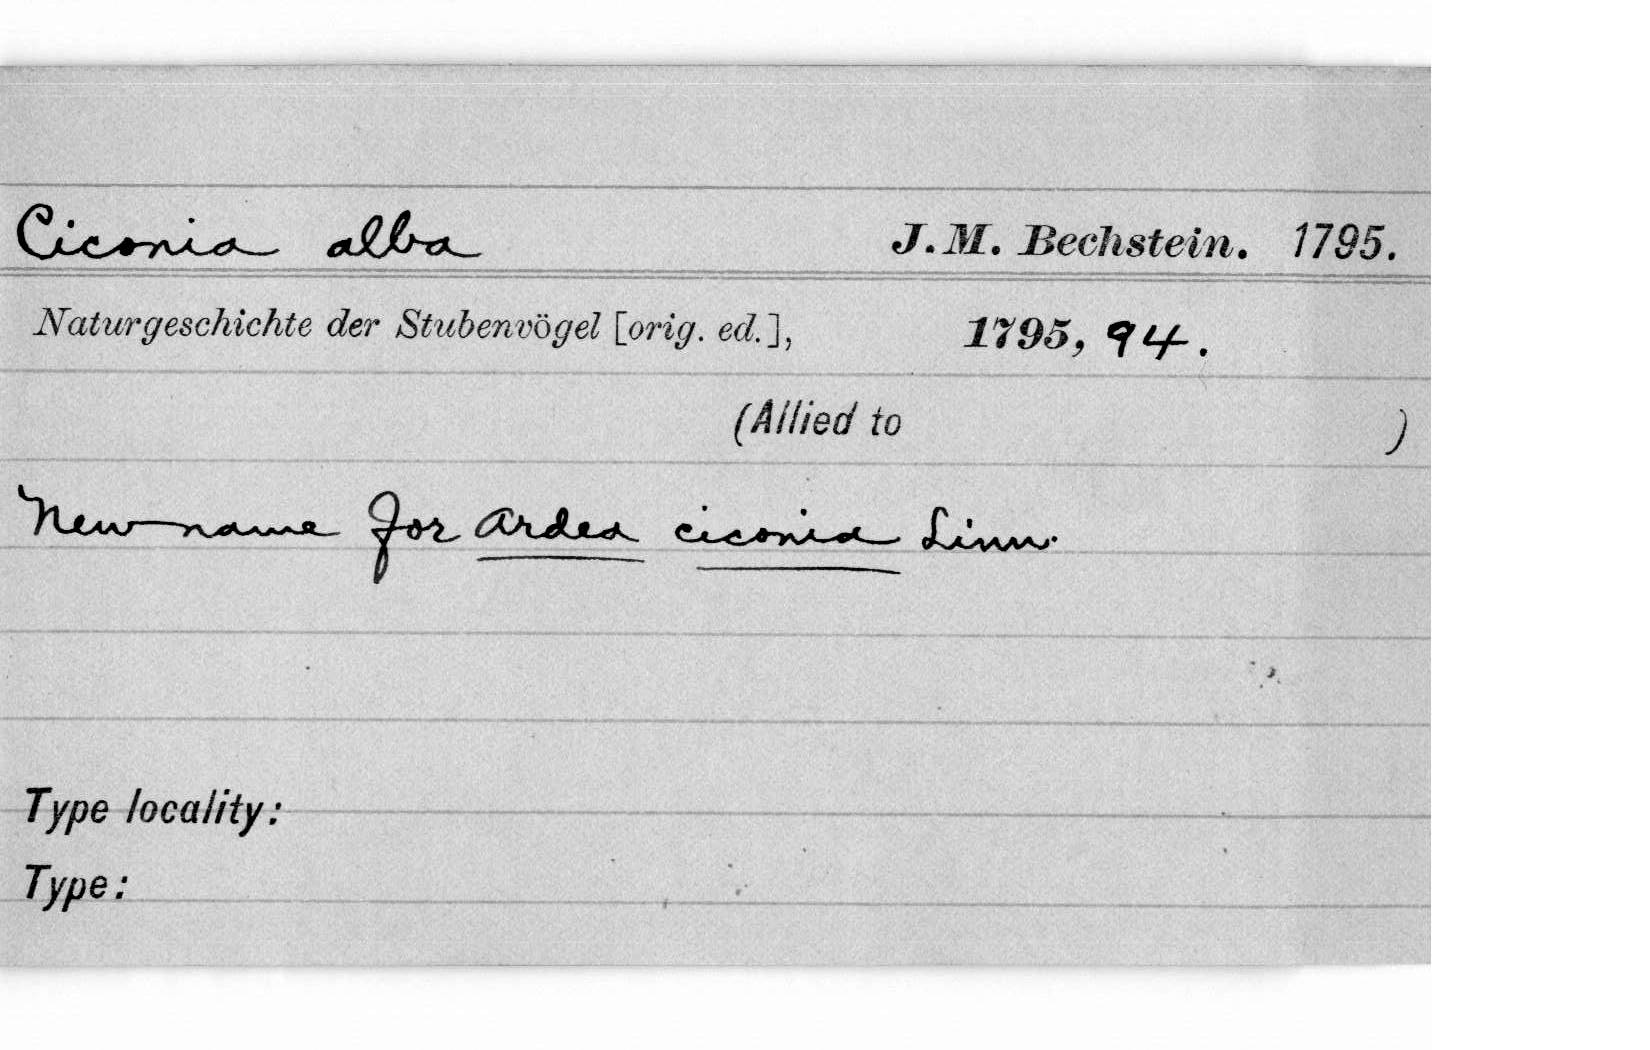 Ciconia alba J. M. Bechstein. 1795.
Naturgeschichte der Stubenvögel [orig. ed.], 1795, 94.
(Allied to )
New name for Ardea ciconia Linn.
Type locality:
Type: